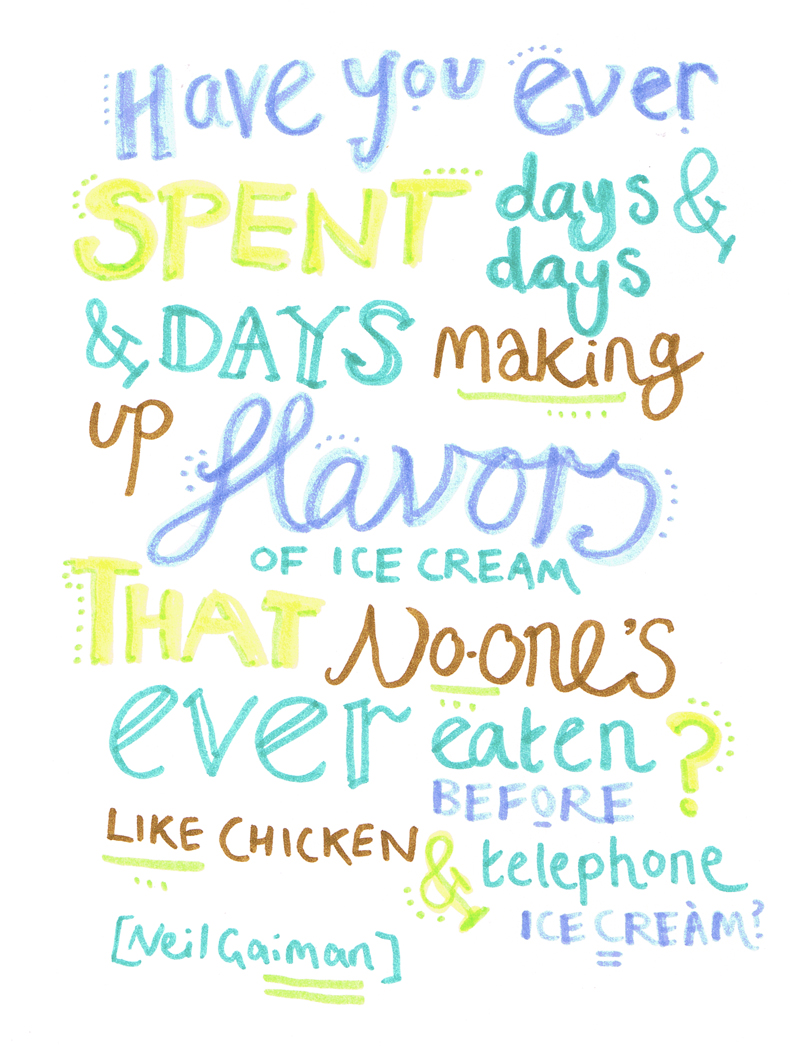 Have you ever
SPENT days &
days
& DAYS making
up flavors
OF ICE CREAM
THAT No-one's
ever eaten ?
BEFORE
LIKE CHICKEN & telephone
ICE CREAM?
[Neil Gaiman]